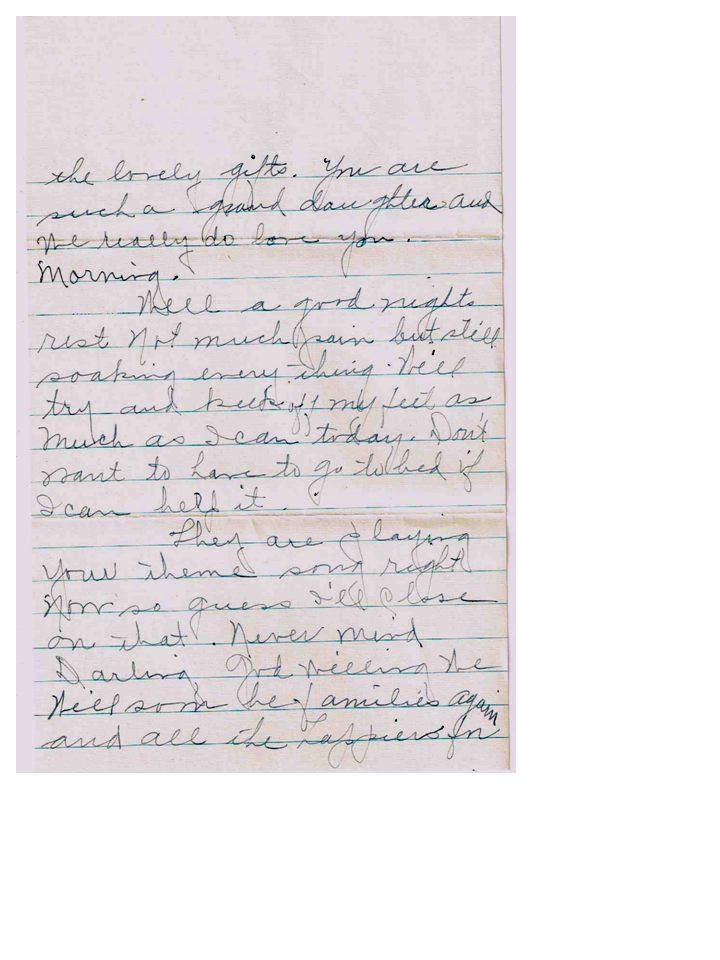 the lovely gifts. You are
such a grand daughter and
We really do love you.
Morning.
Well a good nights
rest Not much pain but still
soaking every thing. Will
try and keep off my feet as
Much as I can today. Don't
want to have to go to bed if
I can help it.
They are playing
Your theme song right
Now so guess I'll close
on that. Never mind
Darling, God Willing We
Will soon be families again
and all the happiers for